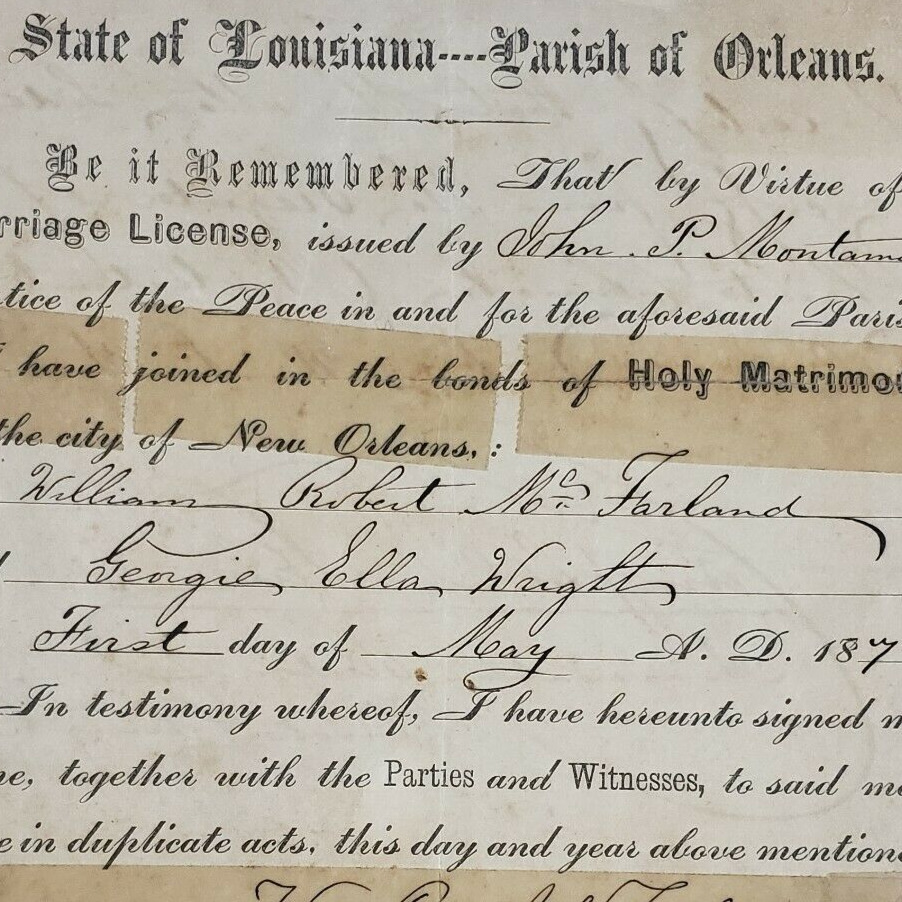 State of Louisiana----Parish of Orleans.
Be it Remembered, That by Virtue of
rriage License, issued by John. P. Montam
tice of the Peace in and for the aforesaid Paris
I have joined in the bonds of Holy Matrimon
the city of New Orleans, :
William Robert Mc Farland
Georgie Ella Wright
First day of May A. D. 187
In testimony whereof, I have hereunto signed m
me, together with the Parties and Witnesses, to said ma
e in duplicate acts, this day and year above mentione